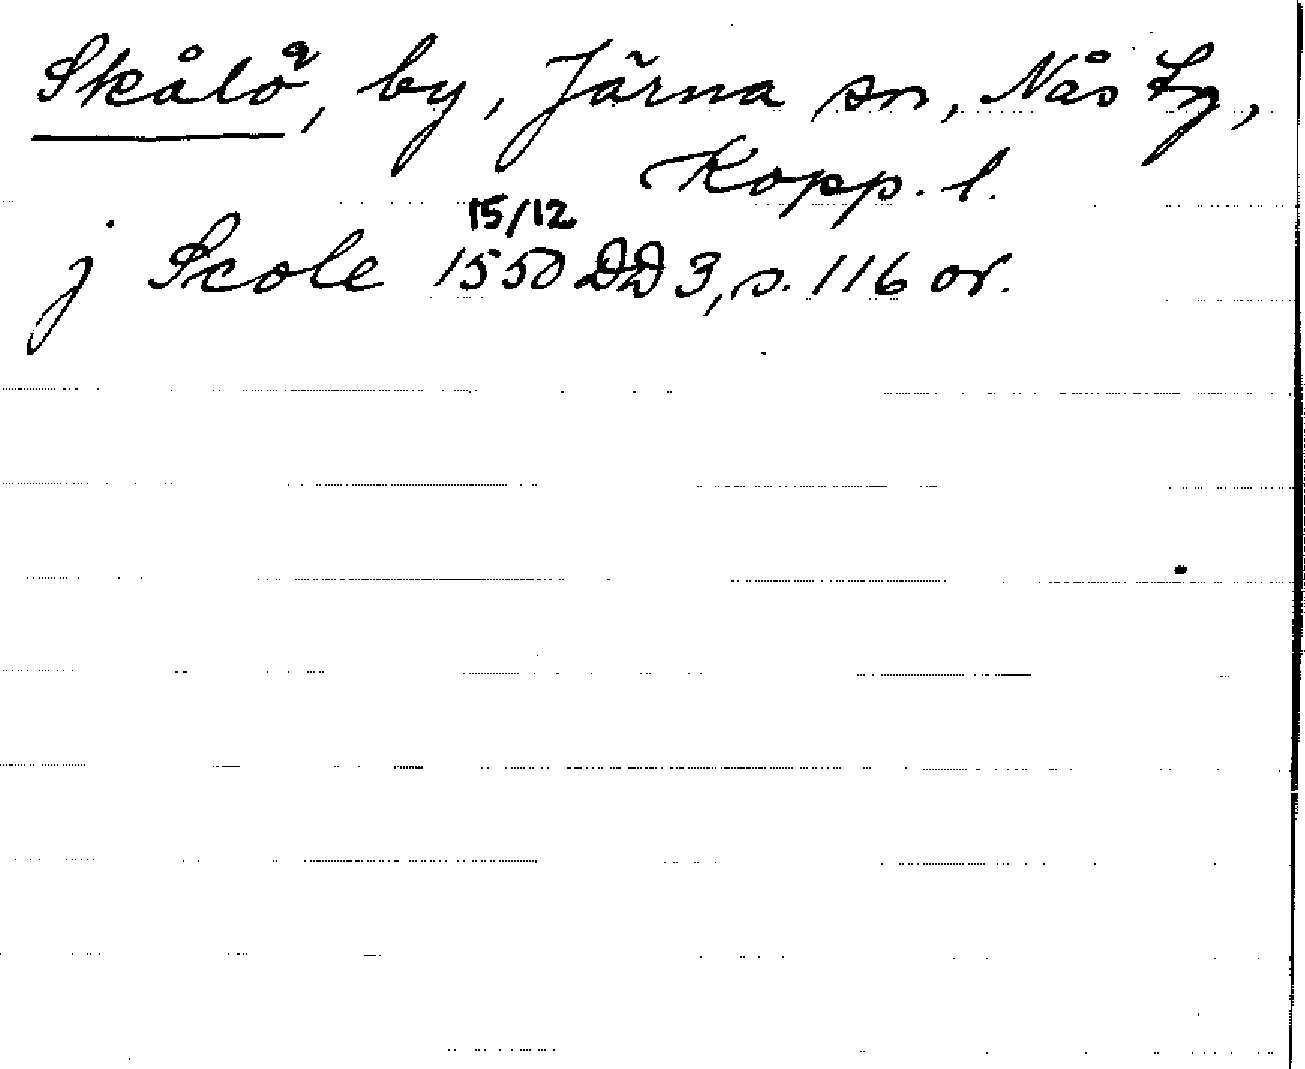 Skålö, by, Järna sn, Nås Lg,
Kopp. l.
15/12
j Scole 1550 DD 3, s. 116 or.